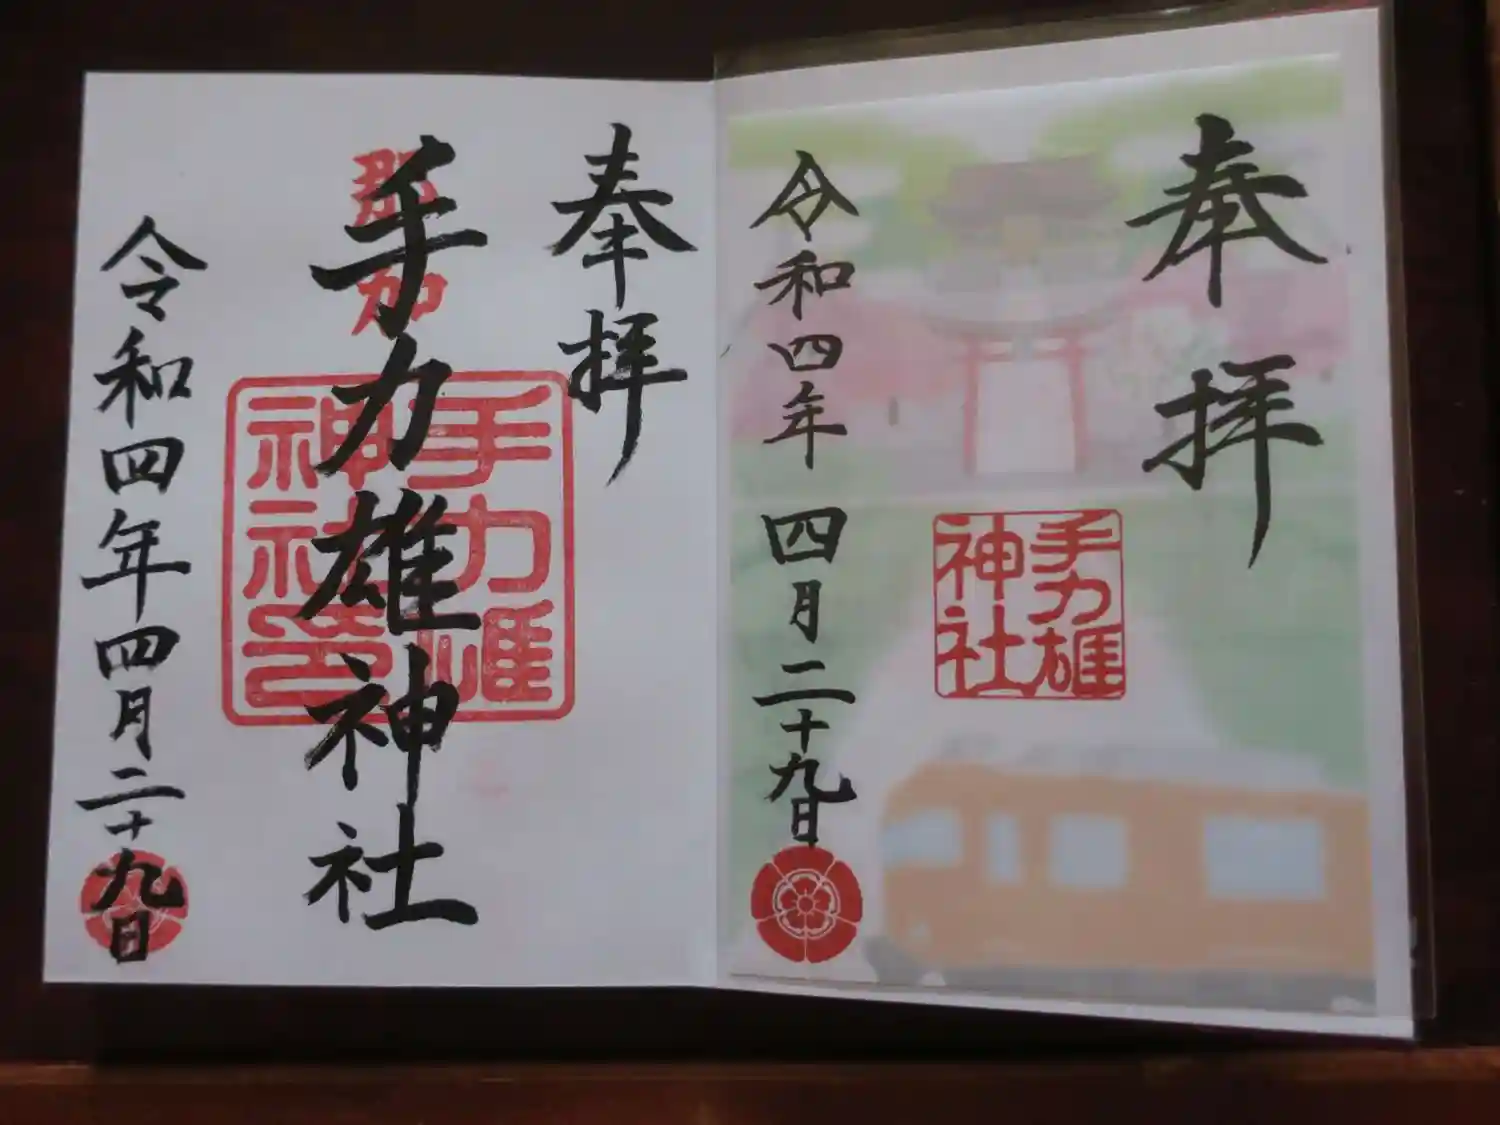 奉拝
令和四年四月二十九日
手力雄
神社
奉拝
那加
手力雄神社
手力雄
神社印
令和四年四月二十九日